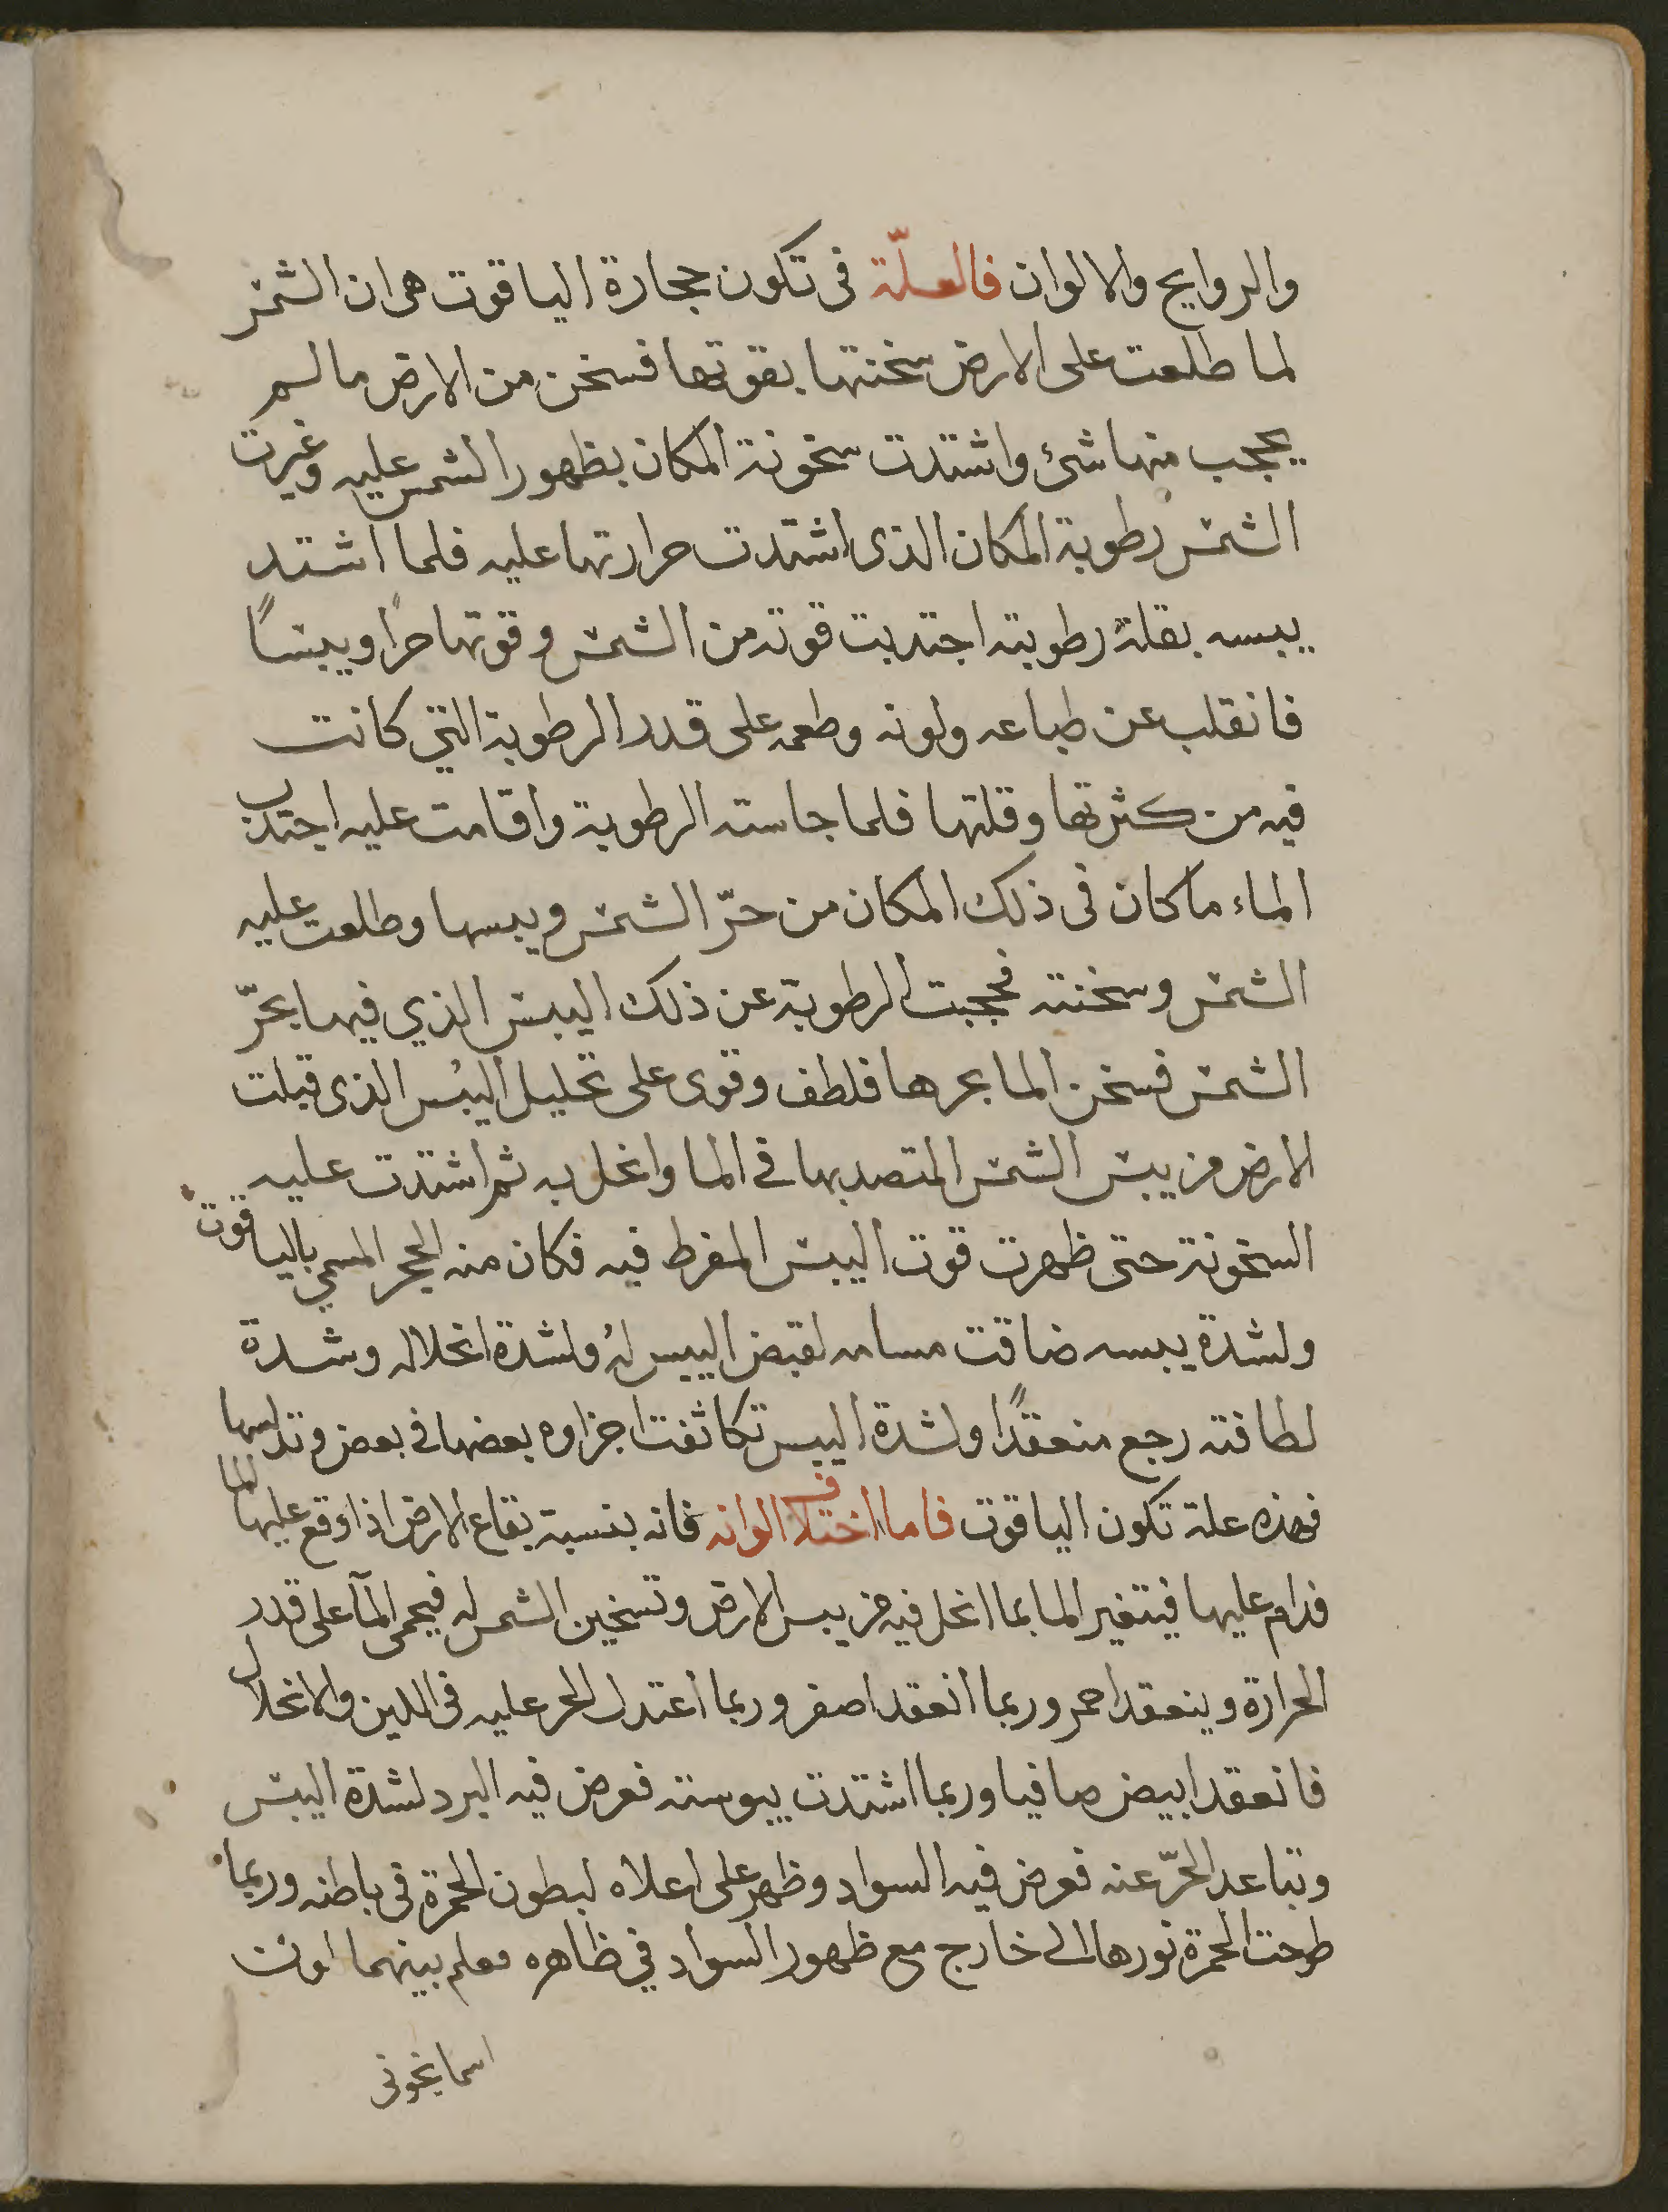 والروايح والالوان فالعلّة فى تكون حجارة الياقوت هى ان الشمس
لما طلعت على الارض سخنتها بقوتها فسخن من الارض ما لم
يحجب منها شئ واشتدت سخونة المكان بظهور الشمس عليه وغيرت
الشمس رطوبة المكان الذى اشتدت حرارتها عليه فلما اشتد
يبسه بقلة رطوبته اجتذبت قوته من الشمس وقوتها حرا ويبسًا
فانقلب عن طباعه ولونه وطعمه على قدر الرطوبة التي كانت
فيه من كثرتها وقلتها فلما جاسته الرطوبة واقامت عليه اجتذب
الماء ما كان فى ذلك المكان من حرّ الشمس ويبسها وطلعت عليه
الشمس وسخنته فحجبت الرطوبة عن ذلك اليبس الذي فيها بحرّ
الشمس فسخن الما بحرها فلطف وقوى على تحليل اليبس الذى قبلت
الارض من يبس الشمس المتصد بها فى الما وانحل به ثم اشتدت عليه
السخونة حتى ظهرت قوت اليبس المفرط فيه فكان منه الحجر المسمي بالياقوت
ولشدة يبسه ضاقت مسامه لقبض اليبس لهُ ولشدة انحلاله وشدة
لطافته رجع منعقدًا ولشدة اليبس تكاثفت اجزاوه بعضها فى بعض
فهذه علة تكون الياقوت فاما اختلاف الوانه فانه بنسبة بقاع الارض اذا وقع عليها الما
فدام عليها فيتغير الما بما انحل فيه من يبس الارض وتسخين الشمس له فيحمى المآ على قدر
الحرارة وينعقد احمر وربما انعقد اصفر وربما اعتدل الحر عليه فى اللين والانحلال
فانعقد ابيض صافيا وربما اشتدت يبوسته فعرض فيه البرد لشدة اليبس
وتباعد الحرّ عنه فعرض فيه السواد وظهر على اعلاه لبطون الحمرة فى باطنه وربما
طرحت الحمرة نورها الى خارج مع ظهور السواد في ظاهره بينهما لون
اسمانجونى